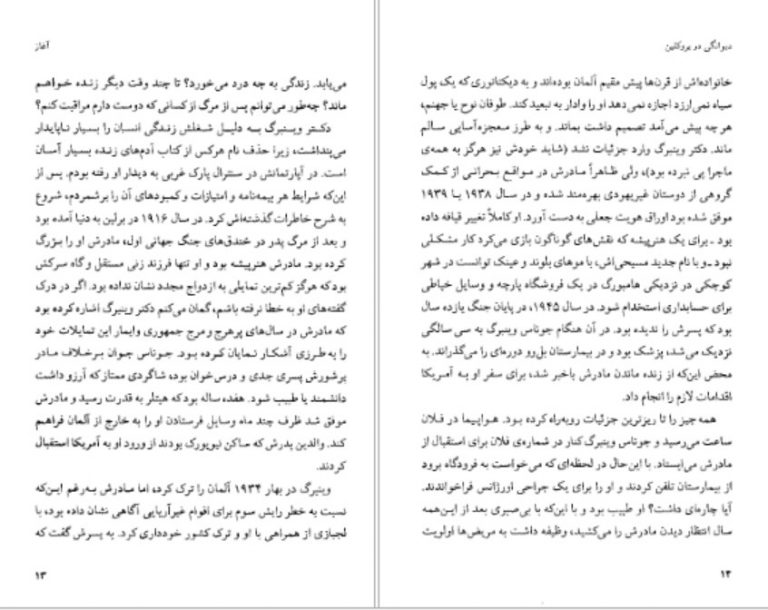 آغاز
می‌یابد. زندگی به چه درد می‌خورد؟ تا چند وقت دیگر زنده خواهم
ماند؟ چه‌طور می‌توانم پس از مرگ از کسانی که دوست دارم مراقبت کنم؟
دکتر وینبرگ به دلیل شغلش زندگی انسان را بسیار ناپایدار
می‌پنداشت، زیرا حذف نام هرکس از کتاب آدم‌های زنده بسیار آسان
است. در آپارتمانش در سنترال پارک غربی به دیدار او رفته بودم. پس از
این‌که شرایط هر بیمه‌نامه و امتیازات و کمبودهای آن را برشمردم، شروع
به شرح خاطرات گذشته‌اش کرد. در سال ۱۹۱۶ در برلین به دنیا آمده بود
و بعد از مرگ پدر در خندق‌های جنگ جهانی اول، مادرش او را بزرگ
کرده بود. مادرش هنرپیشه بود و او تنها فرزند زنی مستقل و گاه سرکش
بود که هرگز کم‌ترین تمایلی به ازدواج مجدد نشان نداده بود. اگر در درک
گفته‌های او به خطا نرفته باشم، گمان می‌کنم دکتر وینبرگ اشاره کرده بود
که مادرش در سال‌های پرهرج و مرج جمهوری وایمار این تمایلات خود
را به طرزی آشکار نمایان کرده بود. جوناس جوان برخلاف مادر
پرشورش پسری جدی و درس‌خوان بود، شاگردی ممتاز که آرزو داشت
دانشمند یا طبیب شود. هفده ساله بود که هیتلر به قدرت رسید و مادرش
موفق شد ظرف چند ماه وسایل فرستادن او را به خارج از آلمان فراهم
کند. والدین پدرش که ساکن نیویورک بودند از ورود او به آمریکا استقبال
کردند.
وینبرگ در بهار ۱۹۳۴ آلمان را ترک کرده اما مادرش به‌رغم این‌که
نسبت به خطر رایش سوم برای اقوام غیرآریایی آگاهی نشان داده بود، با
لجبازی از همراهی با او و ترک کشور خودداری کرد. به پسرش گفت که
۱۳
دیوانگی در بروکلین
خانواده‌اش از قرن‌ها پیش مقیم آلمان بوده‌اند و به دیکتاتوری که یک پول
سیاه نمی‌ارزد اجازه نمی‌دهد او را وادار به تبعید کند. طوفان نوح یا جهنم،
هر چه پیش می‌آمد تصمیم داشت بماند. و به طرز معجزه‌آسایی سالم
ماند. دکتر وینبرگ وارد جزئیات نشد (شاید خودش نیز هرگز به همه‌ی
ماجرا پی نبرده بود)، ولی ظاهراً مادرش در مواقع بحرانی از کمک
گروهی از دوستان غیریهودی بهره‌مند شده و در سال ۱۹۳۸ یا ۱۹۳۹
موفق شده بود اوراق هویت جعلی به دست آورد. او کاملاً تغییر قیافه داده
بود ـ برای یک هنرپیشه که نقش‌های گوناگون بازی می‌کرد کار مشکلی
نبود ـ و با نام جدید مسیحی‌اش، با موهای بلوند و عینک توانست در شهر
کوچکی در نزدیکی هامبورگ در یک فروشگاه پارچه و وسایل خیاطی
برای حسابداری استخدام شود. در سال ۱۹۴۵، در پایان جنگ یازده سال
بود که پسرش را ندیده بود. در آن هنگام جوناس وینبرگ به سی سالگی
نزدیک می‌شد، پزشک بود و در بیمارستان بل‌ویو دوره‌ای را می‌گذراند. به
محض این‌که از زنده ماندن مادرش باخبر شد، برای سفر او به آمریکا
اقدامات لازم را انجام داد.
همه چیز را تا ریزترین جزئیات روبه‌راه کرده بود. هواپیما در فلان
ساعت می‌رسید و جوناس وینبرگ کنار در شماره‌ی فلان برای استقبال از
مادرش می‌ایستاد. با این‌حال در لحظه‌ای که می‌خواست به فرودگاه برود
از بیمارستان تلفن کردند و او را برای یک جراحی اورژانس فراخواندند.
آیا چاره‌ای داشت؟ او طبیب بود و با این‌که با بی‌صبری بعد از این‌همه
سال انتظار دیدن مادرش را می‌کشید، وظیفه داشت به مریض‌ها اولویت
۱۴